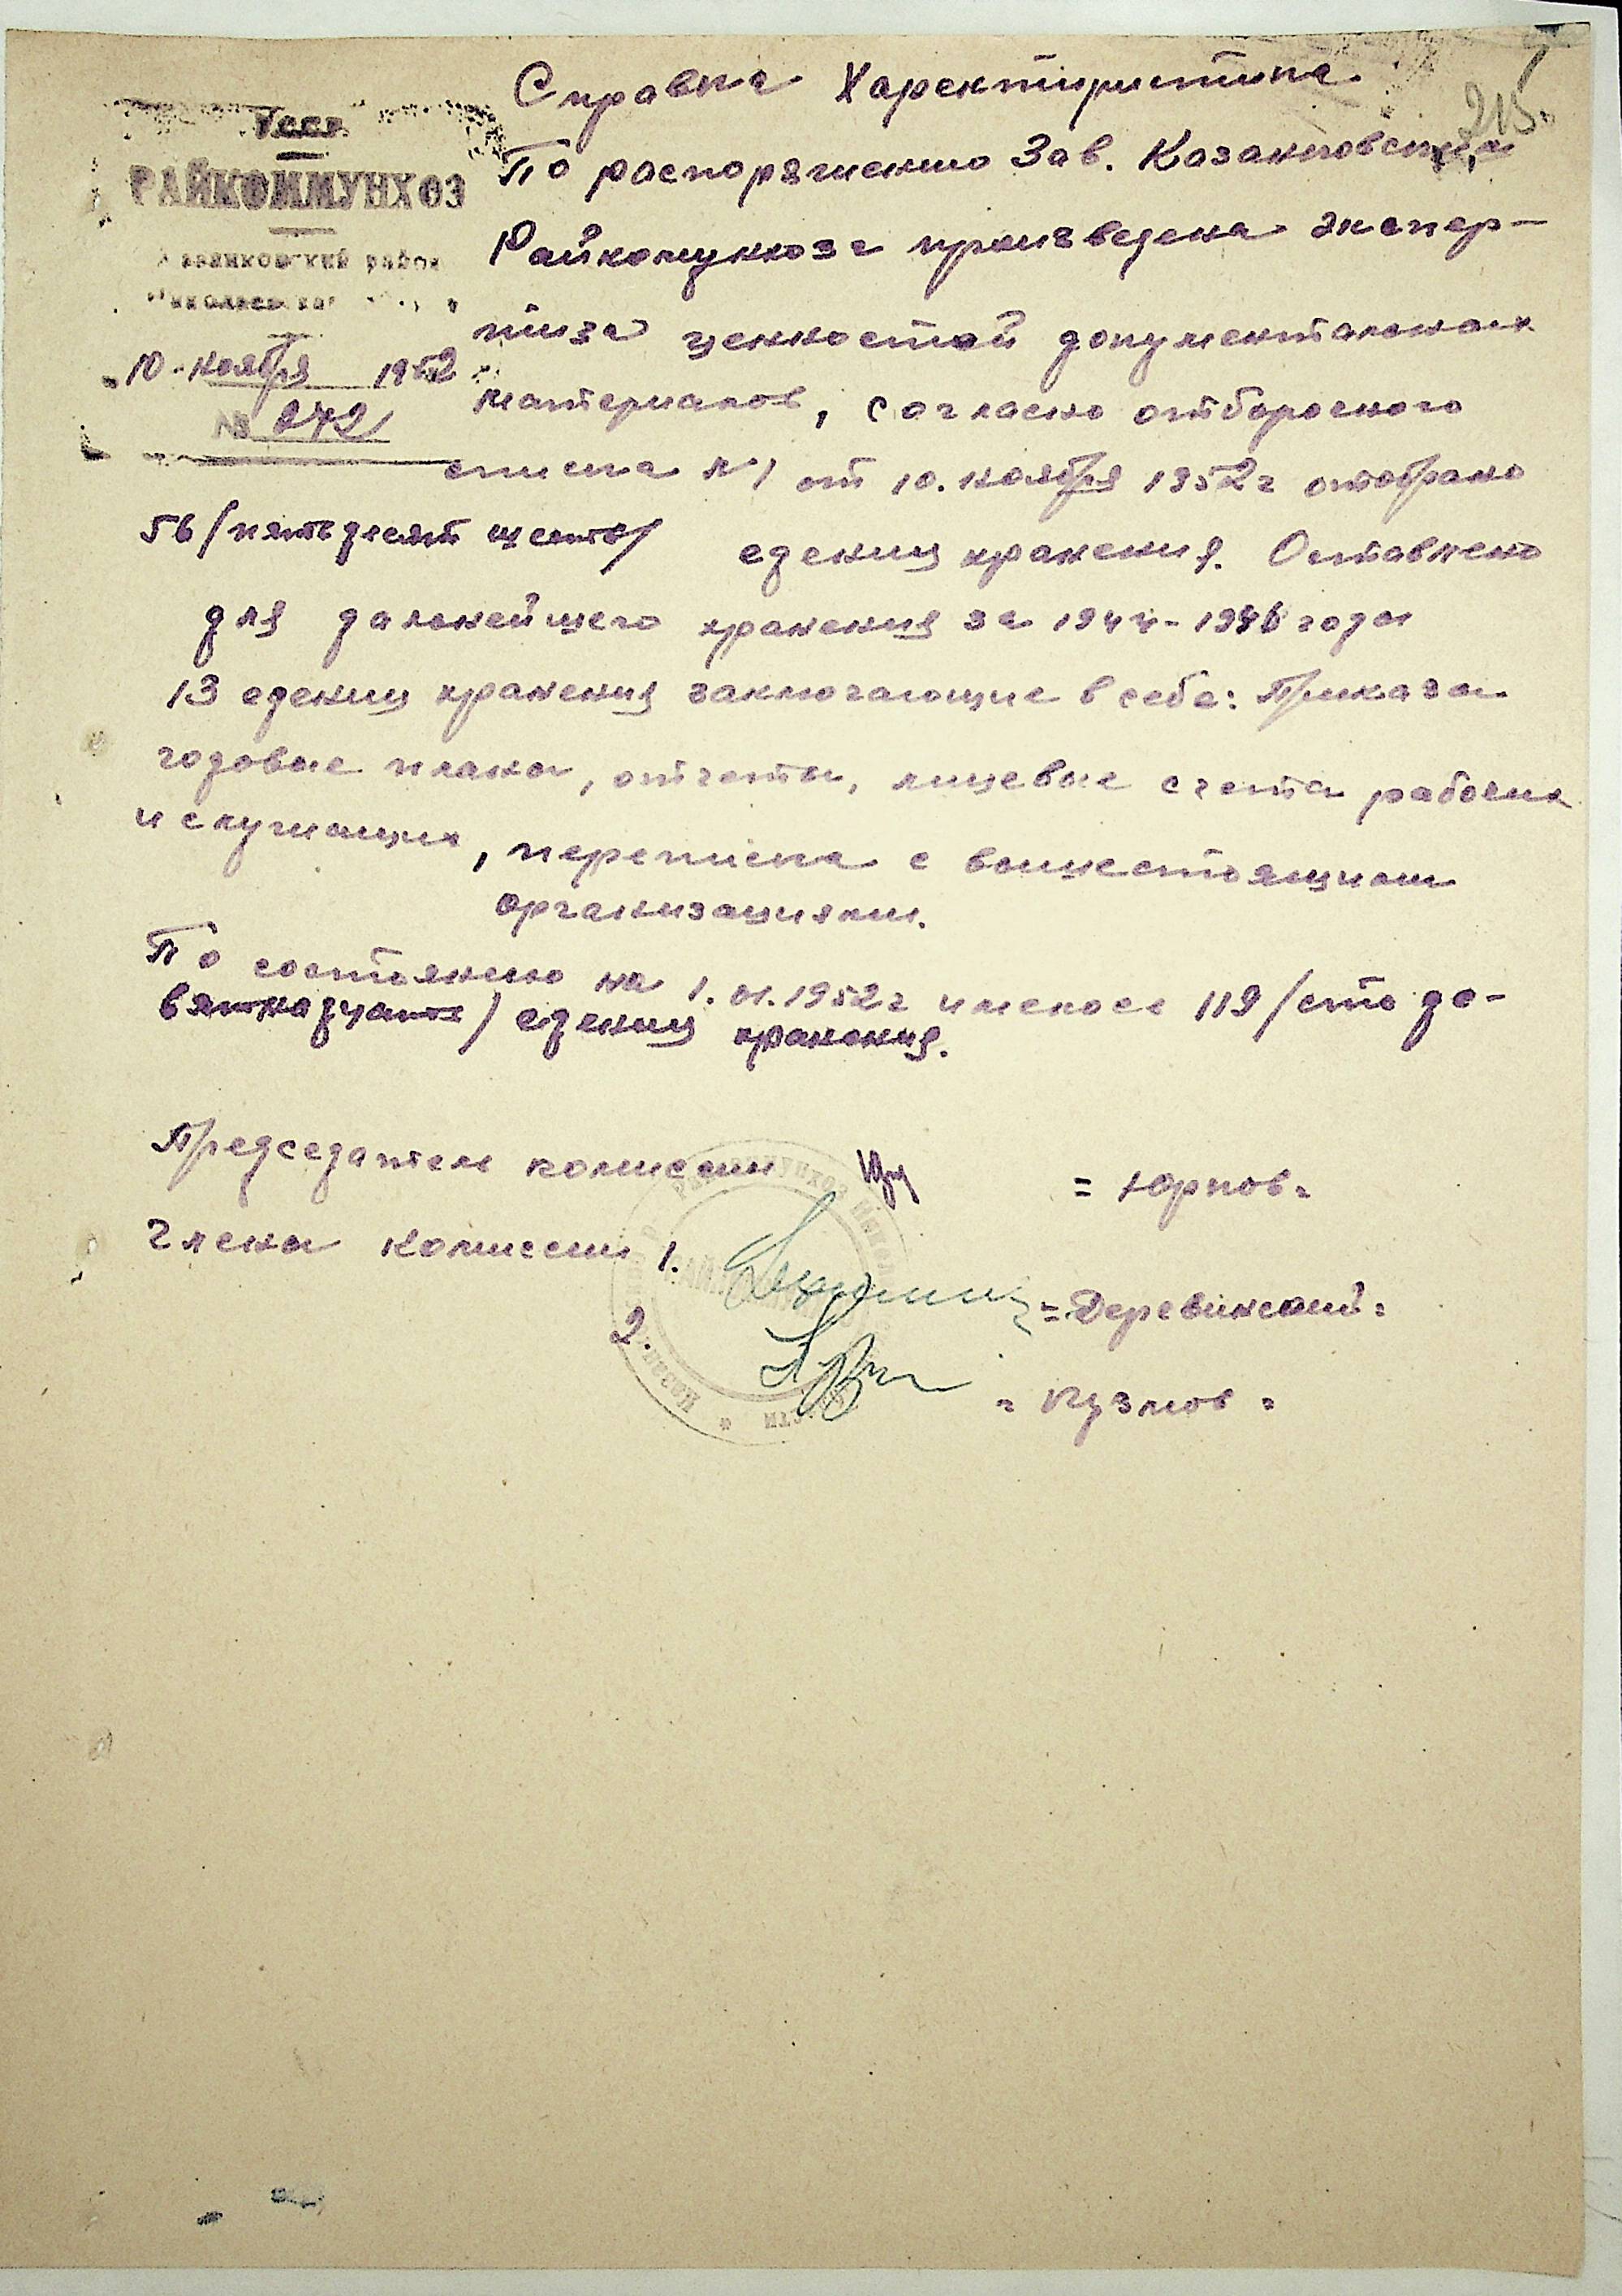 Справка Характиристика
215
УССР
РАЙКОММУНХОЗ
10 ноября 1952
№ 272
По распоряжению Зав. Казанковским
Райкомунхоза произведена экспер-
тиза ценностей документальных
материалов, согласно отборосного
списка №1 от 10. ноября 1952г отобрано
56 /пятьдесят шесть/ едениц хранения. Оставлено
для дальнейшего хранения за 1944-1946 годы
13 едениц хранения заключающие в себе: Приказы
годовые планы, отчеты, лицевые счета рабочих
и служащих, переписка с вышестоящими
организациями.
По состоянию на 1.01.1952г имелось 119 /сто де-
вятнадцать/ едениц хранения.
Председатель комиссии = Юрков =
Члены комиссии 1. = Деревинский =
2. = Кузмов =